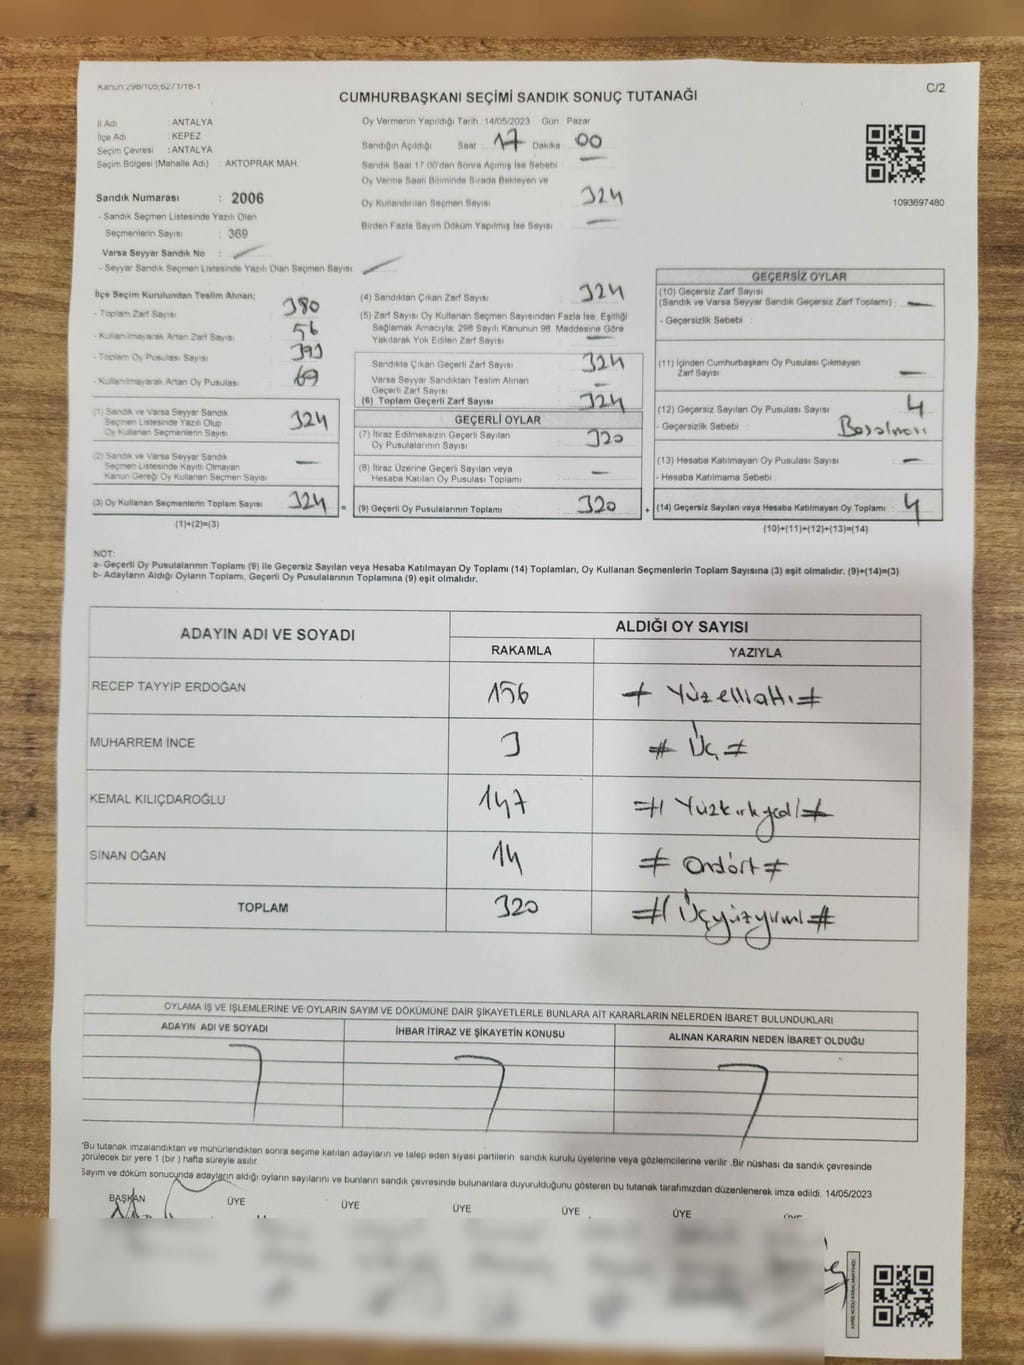 Kanun:298/105;6271/16-1
C/2
CUMHURBAŞKANI SEÇİMİ SANDIK SONUÇ TUTANAĞI
İl Adı : ANTALYA
İlçe Adı : KEPEZ
Seçim Çevresi : ANTALYA
Seçim Bölgesi (Mahalle Adı) : AKTOPRAK MAH.
Sandık Numarası : 2006
- Sandık Seçmen Listesinde Yazılı Olan
Seçmenlerin Sayısı : 369
Varsa Seyyar Sandık No :
- Seyyar Sandık Seçmen Listesinde Yazılı Olan Seçmen Sayısı
Oy Vermenin Yapıldığı Tarih :14/05/2023 Gün : Pazar
Sandığın Açıldığı Saat : 17 Dakika : 00
Sandık Saat 17.00'den Sonra Açılmış İse Sebebi
Oy Verme Saati Bitiminde Sırada Bekleyen ve
Oy Kullandırılan Seçmen Sayısı 324
Birden Fazla Sayım Döküm Yapılmış İse Sayısı
1093697480
İlçe Seçim Kurulundan Teslim Alınan;
- Toplam Zarf Sayısı 380
- Kullanılmayarak Artan Zarf Sayısı 56
- Toplam Oy Pusulası Sayısı 393
- Kullanılmayarak Artan Oy Pusulası 69
(1) Sandık ve Varsa Seyyar Sandık
Seçmen Listesinde Yazılı Olup
Oy Kullanan Seçmenlerin Sayısı 324
(2) Sandık ve Varsa Seyyar Sandık
Seçmen Listesinde Kayıtlı Olmayan
Kanun Gereği Oy Kullanan Seçmen Sayısı
(3) Oy Kullanan Seçmenlerin Toplam Sayısı 324
(1)+(2)=(3)
(4) Sandıktan Çıkan Zarf Sayısı 324
(5) Zarf Sayısı Oy Kullanan Seçmen Sayısından Fazla İse, Eşitliği
Sağlamak Amacıyla, 298 Sayılı Kanunun 98. Maddesine Göre
Yakılarak Yok Edilen Zarf Sayısı
Sandıkta Çıkan Geçerli Zarf Sayısı 324
Varsa Seyyar Sandıktan Teslim Alınan
Geçerli Zarf Sayısı
(6) Toplam Geçerli Zarf Sayısı 324
GEÇERLİ OYLAR
(7) İtiraz Edilmeksizin Geçerli Sayılan
Oy Pusulalarının Sayısı 320
(8) İtiraz Üzerine Geçerli Sayılan veya
Hesaba Katılan Oy Pusulası Toplamı
= (9) Geçerli Oy Pusulalarının Toplamı 320
GEÇERSİZ OYLAR
(10) Geçersiz Zarf Sayısı
(Sandık ve Varsa Seyyar Sandık Geçersiz Zarf Toplamı) :
- Geçersizlik Sebebi :
(11) İçinden Cumhurbaşkanı Oy Pusulası Çıkmayan
Zarf Sayısı
(12) Geçersiz Sayılan Oy Pusulası Sayısı 4
- Geçersizlik Sebebi :
(13) Hesaba Katılmayan Oy Pusulası Sayısı
- Hesaba Katılmama Sebebi :
+ (14) Geçersiz Sayılan veya Hesaba Katılmayan Oy Toplamı 4
(10)+(11)+(12)+(13)=(14)
NOT:
a- Geçerli Oy Pusulalarının Toplamı (9) ile Geçersiz Sayılan veya Hesaba Katılmayan Oy Toplamı (14) Toplamları, Oy Kullanan Seçmenlerin Toplam Sayısına (3) eşit olmalıdır. (9)+(14)=(3)
b- Adayların Aldığı Oyların Toplamı, Geçerli Oy Pusulalarının Toplamına (9) eşit olmalıdır.
ADAYIN ADI VE SOYADI
ALDIĞI OY SAYISI
RAKAMLA YAZIYLA
RECEP TAYYİP ERDOĞAN 156 # Yüzellialtı #
MUHARREM İNCE 3 # Üç #
KEMAL KILIÇDAROĞLU 147 # Yüzkırkyedi #
SİNAN OĞAN 14 # Ondört #
TOPLAM 320 # Üçyüzyirmi #
OYLAMA İŞ VE İŞLEMLERİNE VE OYLARIN SAYIM VE DÖKÜMÜNE DAİR ŞİKAYETLERLE BUNLARA AİT KARARLARIN NELERDEN İBARET BULUNDUKLARI
ADAYIN ADI VE SOYADI İHBAR İTİRAZ VE ŞİKAYETİN KONUSU ALINAN KARARIN NEDEN İBARET OLDUĞU
*Bu tutanak imzalandıktan ve mühürlendikten sonra seçime katılan adayların ve talep eden siyasi partilerin sandık kurulu üyelerine veya gözlemcilerine verilir .Bir nüshası da sandık çevresinde
görülecek bir yere 1 (bir ) hafta süreyle asılır.
Sayım ve döküm sonucunda adayların aldığı oyların sayılarını ve bunların sandık çevresinde bulunanlara duyurulduğunu gösteren bu tutanak tarafımızdan düzenlenerek imza edildi. 14/05/2023
BAŞKAN ÜYE ÜYE ÜYE ÜYE ÜYE ÜYE